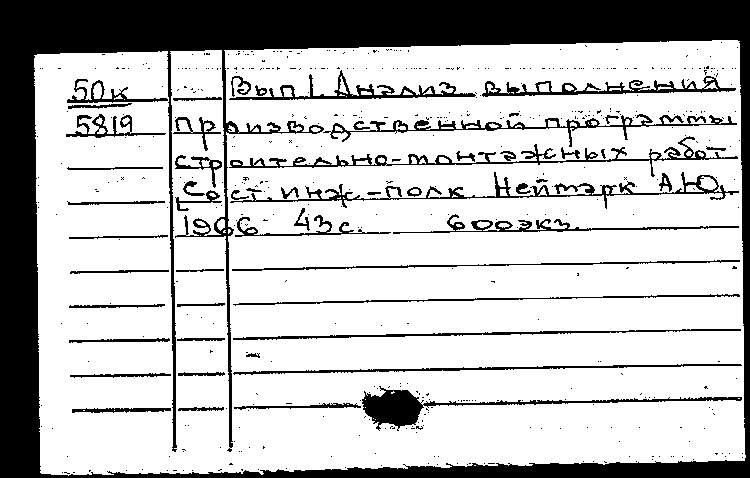 50к Вып 1. Анализ выполнения
5819 производственной программы
строительно-монтажных работ
[Сост. инж.-полк. Неймарк А.Ю.
1966. 43 с. 600 экз.